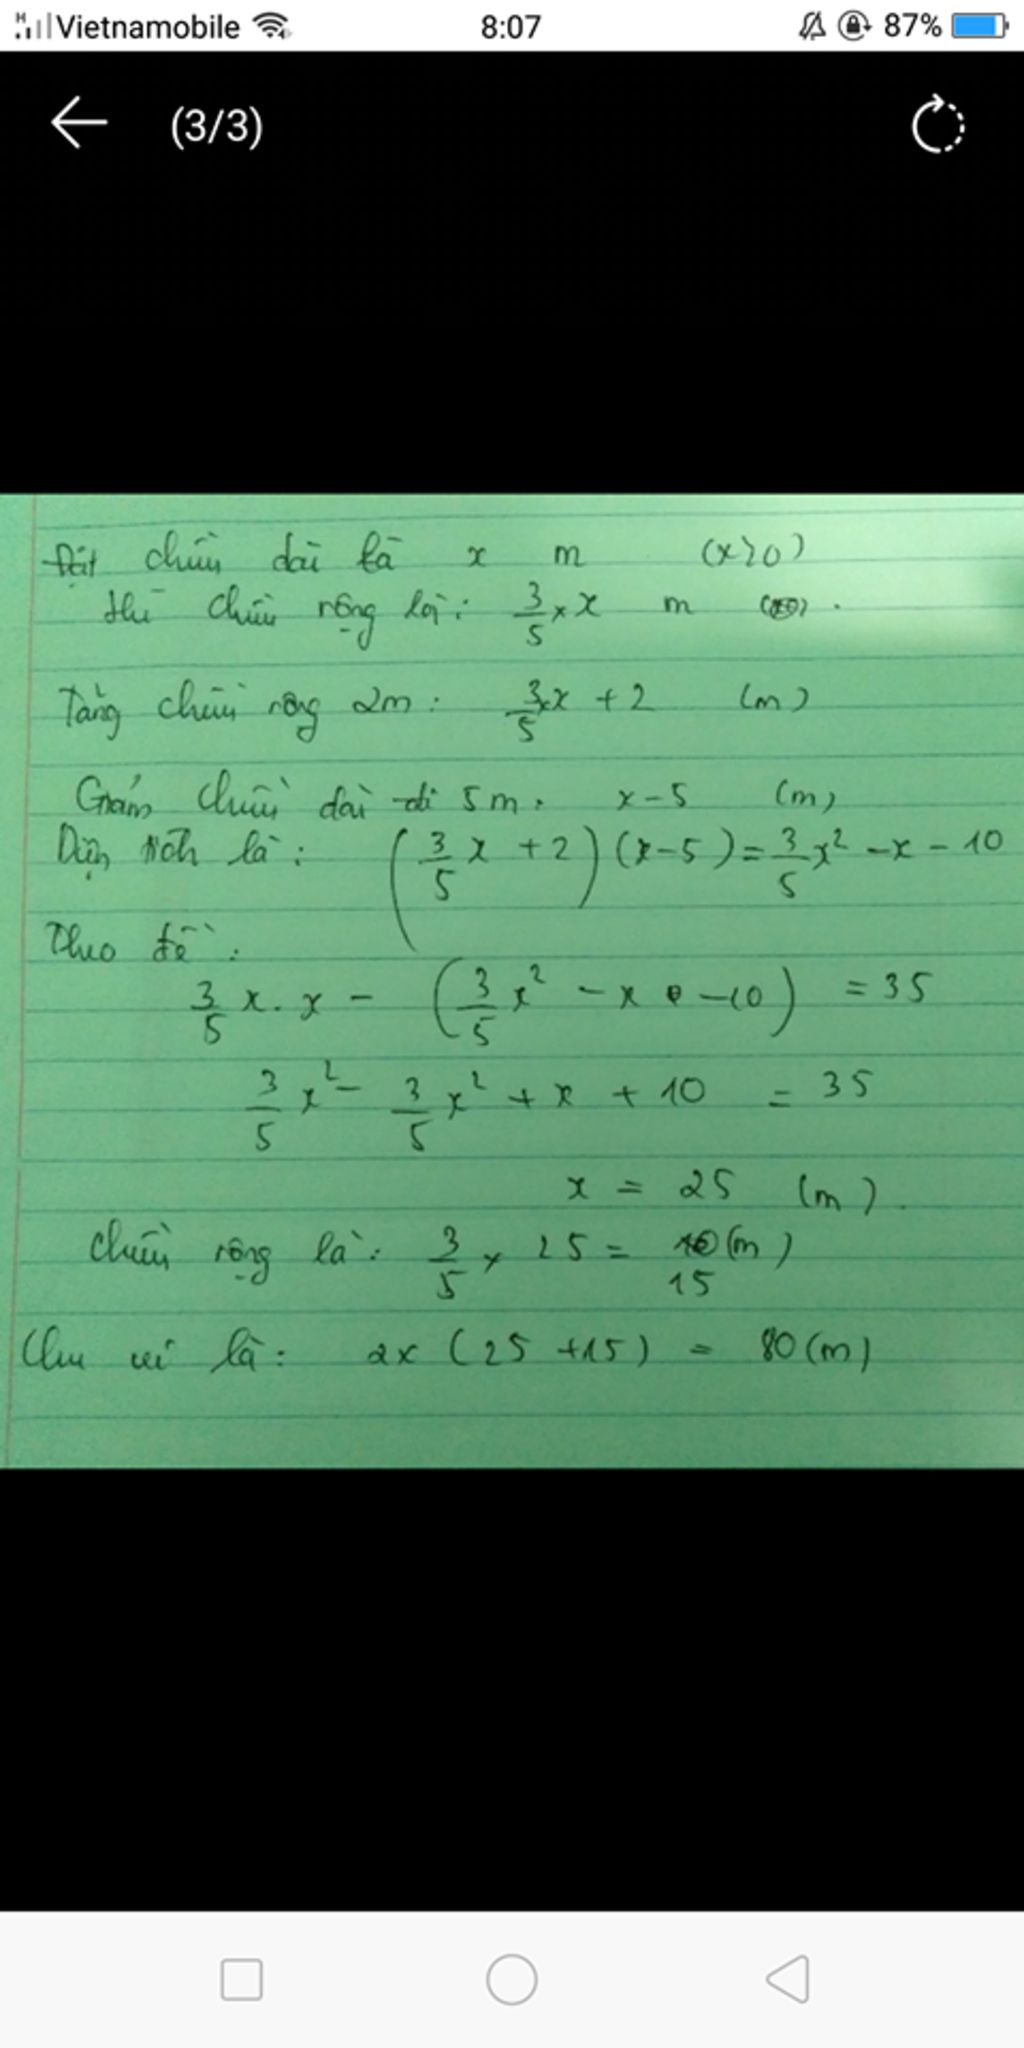 Vietnamobile 8:07 87%
(3/3)
Đặt chiều dài là x m (x>0)
thì chiều rộng là: 3/5 × x m
Tăng chiều rộng 2m: 3/5 × x + 2 (m)
Giảm chiều dài đi 5m: x - 5 (m)
Diện tích là: (3/5 x + 2)(x - 5) = 3/5 x² - x - 10
Theo đề:
3/5 x . x - (3/5 x² - x - 10) = 35
3/5 x² - 3/5 x² + x + 10 = 35
x = 25 (m).
Chiều rộng là: 3/5 × 25 = 15 (m)
Chu vi là: 2x (25 + 15) = 80 (m)